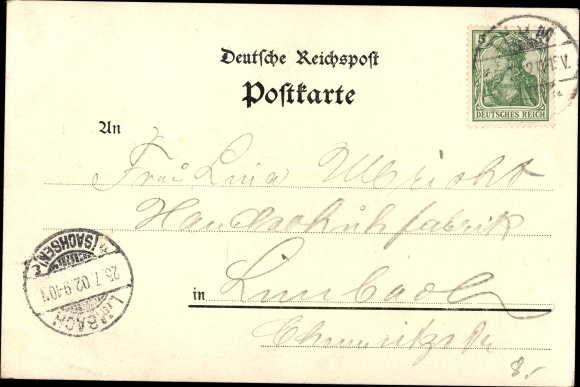 Deutsche Reichspost
Postkarte
5
DEUTSCHES REICH
An
Frau Lina
Handschuhfabrik
in Limbach
Chemnitzstr
8.-
(SACHSEN)
25.7.02.9-10
LIMBACH